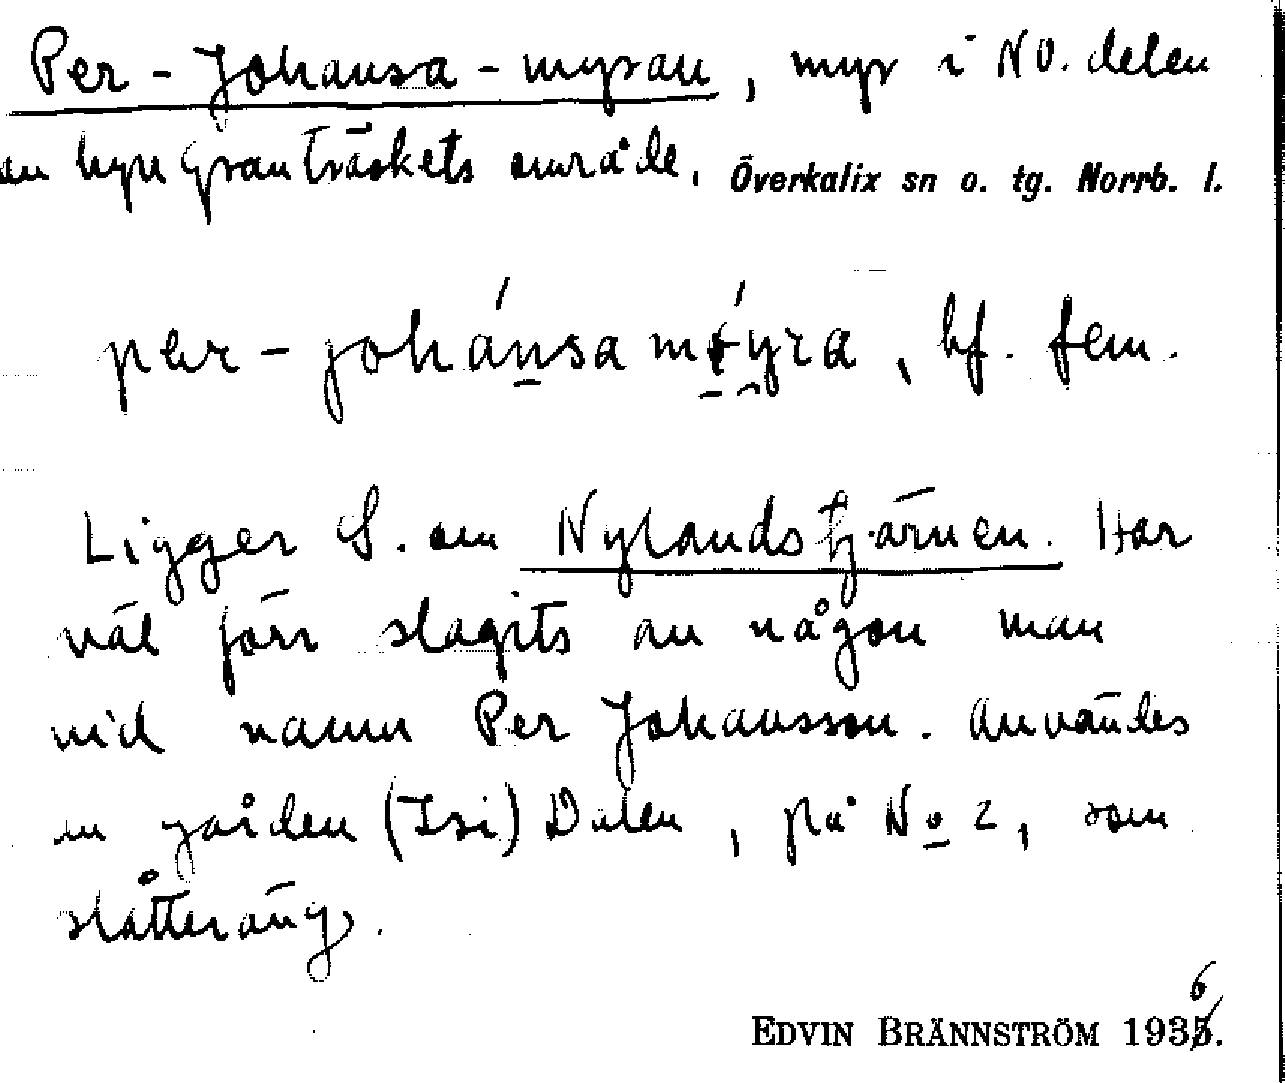 Per-Johansa-myran, myr i NV. delen
av byn Granträskets område. Överkalix sn o. tg. Norrb. l.
per-johánsa møyra, bf. fem.
Ligger S. om Nylandstjärnen. Har
väl förr slagits av någon man
vid namn Per Johansson. Användes
av gården (Isi) Dalen, på No 2, som
slåtteräng.
EDVIN BRÄNNSTRÖM 1936.